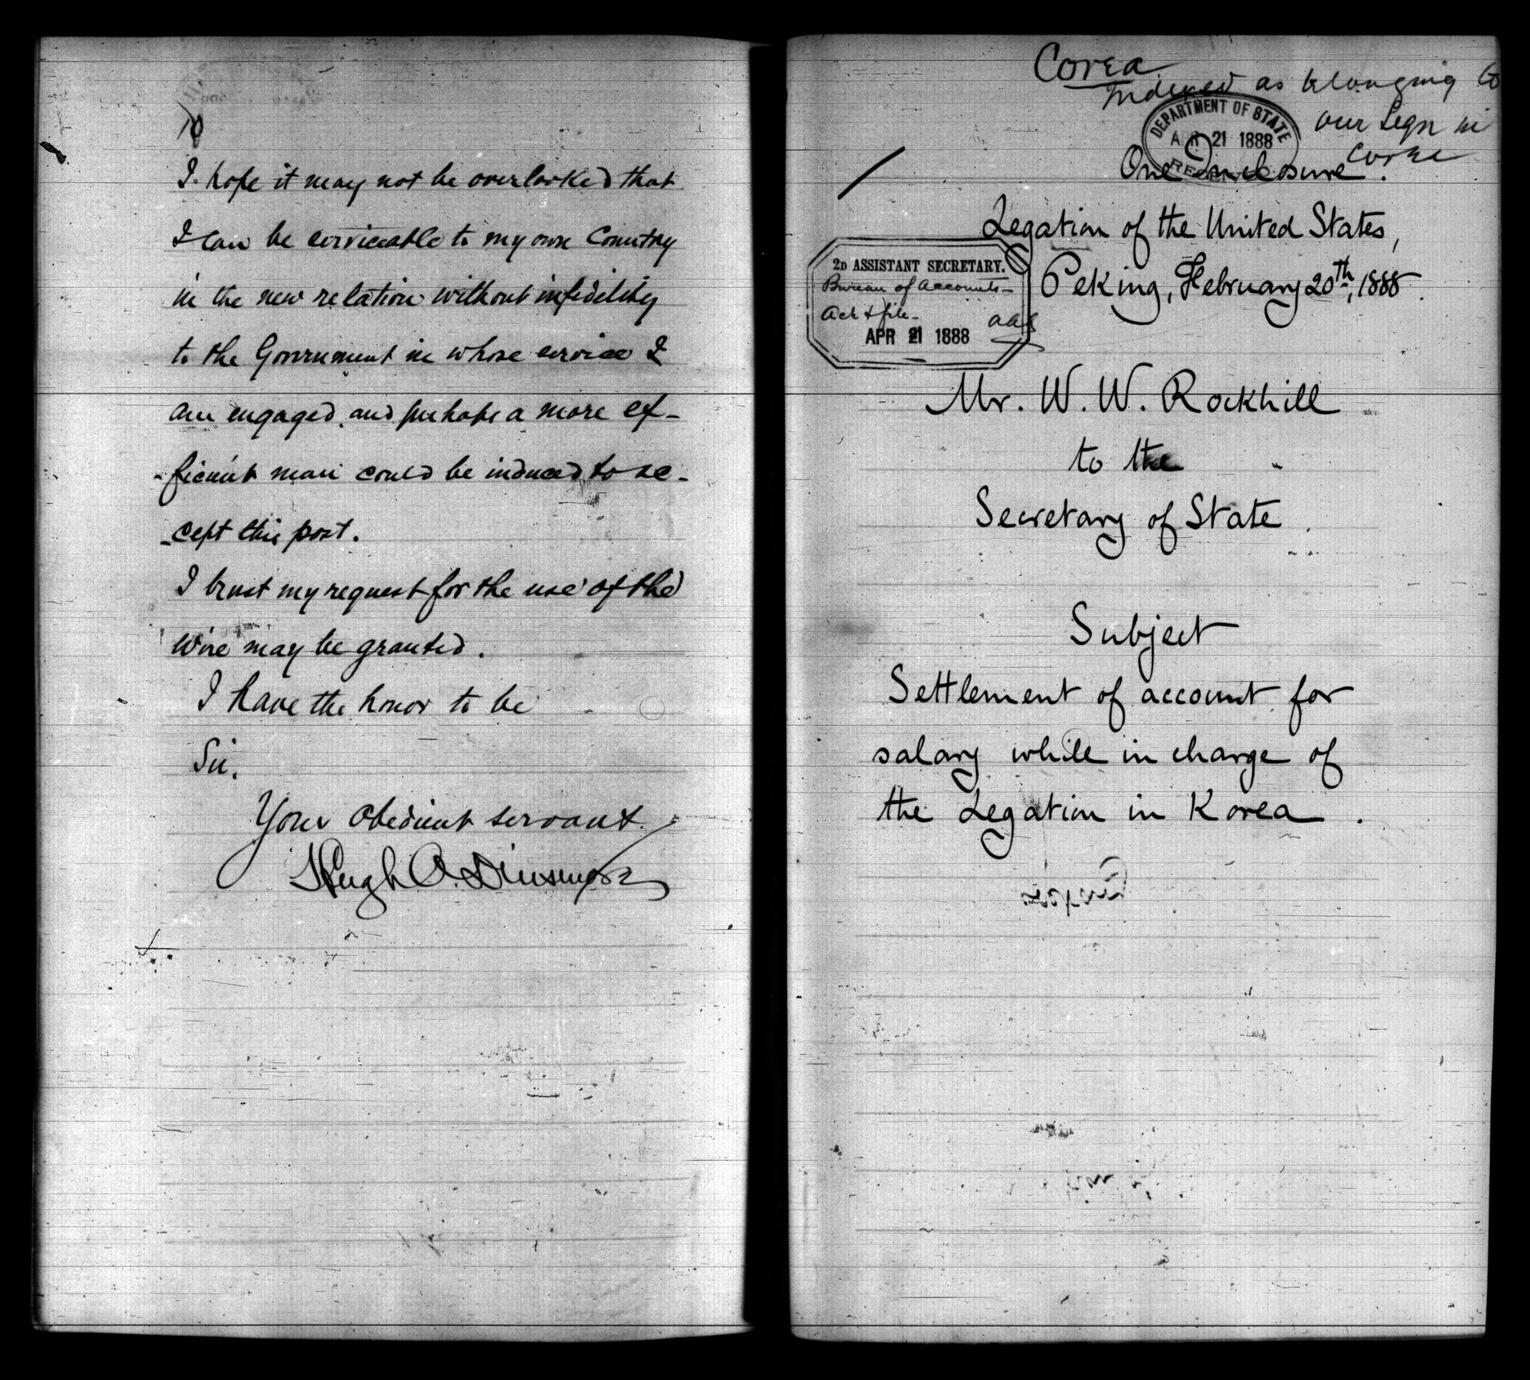 10
I hope it may not be overlooked that
I can be serviceable to my own Country
in the new relation without infidelity
to the Government in whose service I
am engaged, and perhaps a more ef-
-ficient man could be induced to ac-
-cept this post.
I trust my request for the use of the
wire may be granted.
I have the honor to be
Sir,
Your obedient servant
Hugh A. Dinsmore
Corea
Indexed as belonging to
our Legn in
Corea
DEPARTMENT OF STATE
21 1888
RECEIVED
One Enclosure.
Legation of the United States,
Peking, February 20th, 1888.
2D ASSISTANT SECRETARY.
Bureau of Accounts
Ack & file
aaa
APR 21 1888
Mr. W. W. Rockhill
to the
Secretary of State.
Subject
Settlement of account for
salary while in charge of
the Legation in Korea.